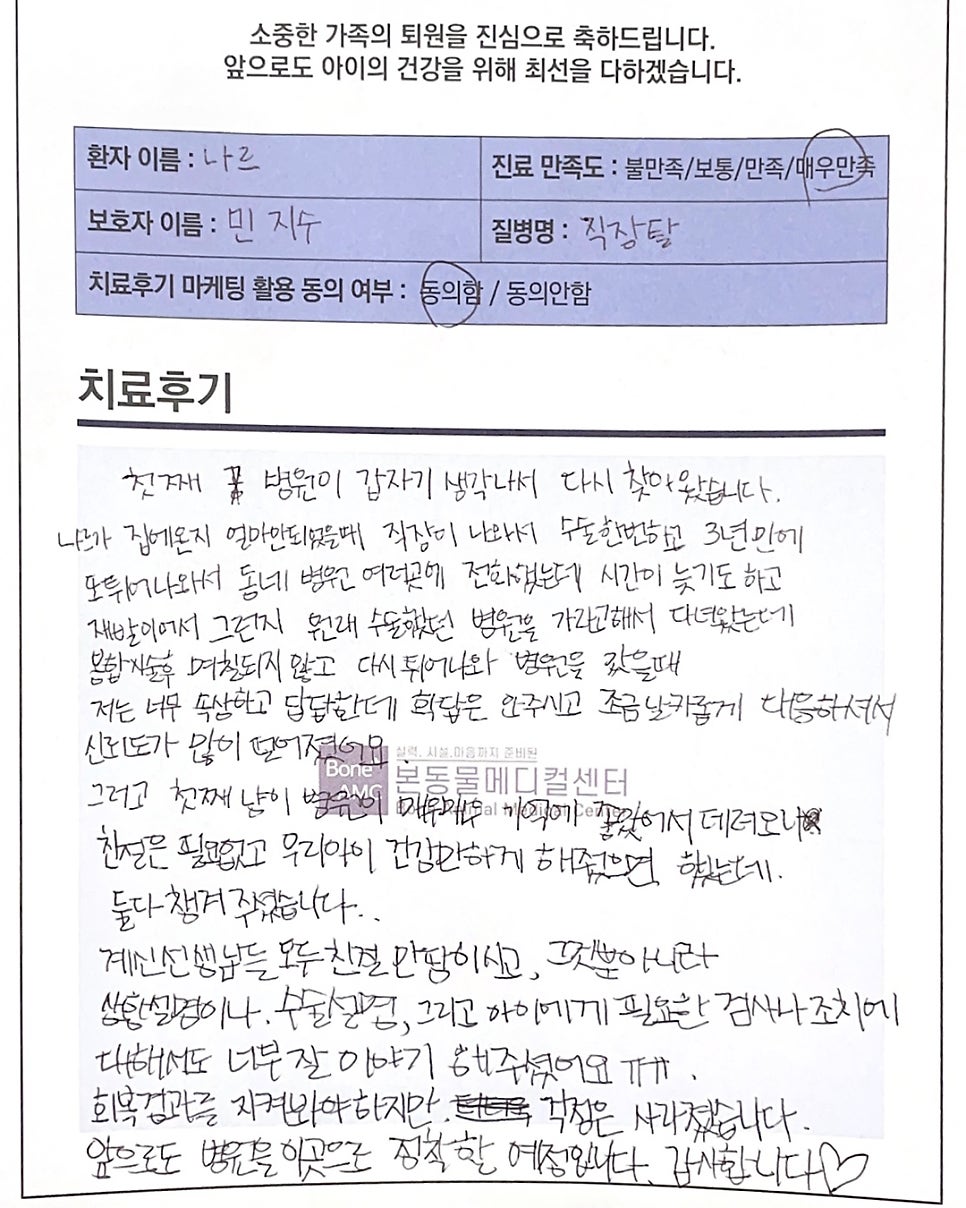 소중한 가족의 퇴원을 진심으로 축하드립니다.
앞으로도 아이의 건강을 위해 최선을 다하겠습니다.
환자 이름 : 나르
진료 만족도 : 불만족/보통/만족/매우만족
보호자 이름 : 민지수
질병명 : 직장탈
치료후기 마케팅 활용 동의 여부 : 동의함 / 동의안함
치료후기
첫째 병원이 갑자기 생각나서 다시 찾아왔습니다.
나르가 집에온지 얼마안되었을때 직장이 나와서 수술한번하고 3년만에
또튀어나와서 동네 병원 여러곳에 전화했는데 시간이 늦기도 하고
재발이어서 그런지 원래 수술했던 병원을 가라고해서 다녀왔는데
봉합시술후 며칠되지 않고 다시 튀어나와 병원을 갔을때
저는 너무 속상하고 답답한데 확답은 안주시고 조금 날카롭게 대응하셔서
신뢰도가 많이 떨어졌어요.
실력, 시설, 마음까지 준비된
Bone AMC 본동물메디컬센터
Bone Animal Medical Center
그러고 첫째 병원이 매우매우 기억에 좋았어서 데려오니
친절은 필요없고 우리아이 건강만하게 해줬으면 했는데.
둘다 챙겨주셨습니다..
계신선생님들 모두 친절 만땅이시고, 그뿐아니라
상황설명이나. 수술설명, 그리고 아이에게 필요한 검사나 조치에
대해서도 너무 잘 이야기 해주셨어요 ㅠㅠ.
회복경과를 지켜봐야하지만. 걱정은 사라졌습니다.
앞으로도 병원을 이곳으로 정착할 예정입니다. 감사합니다♡